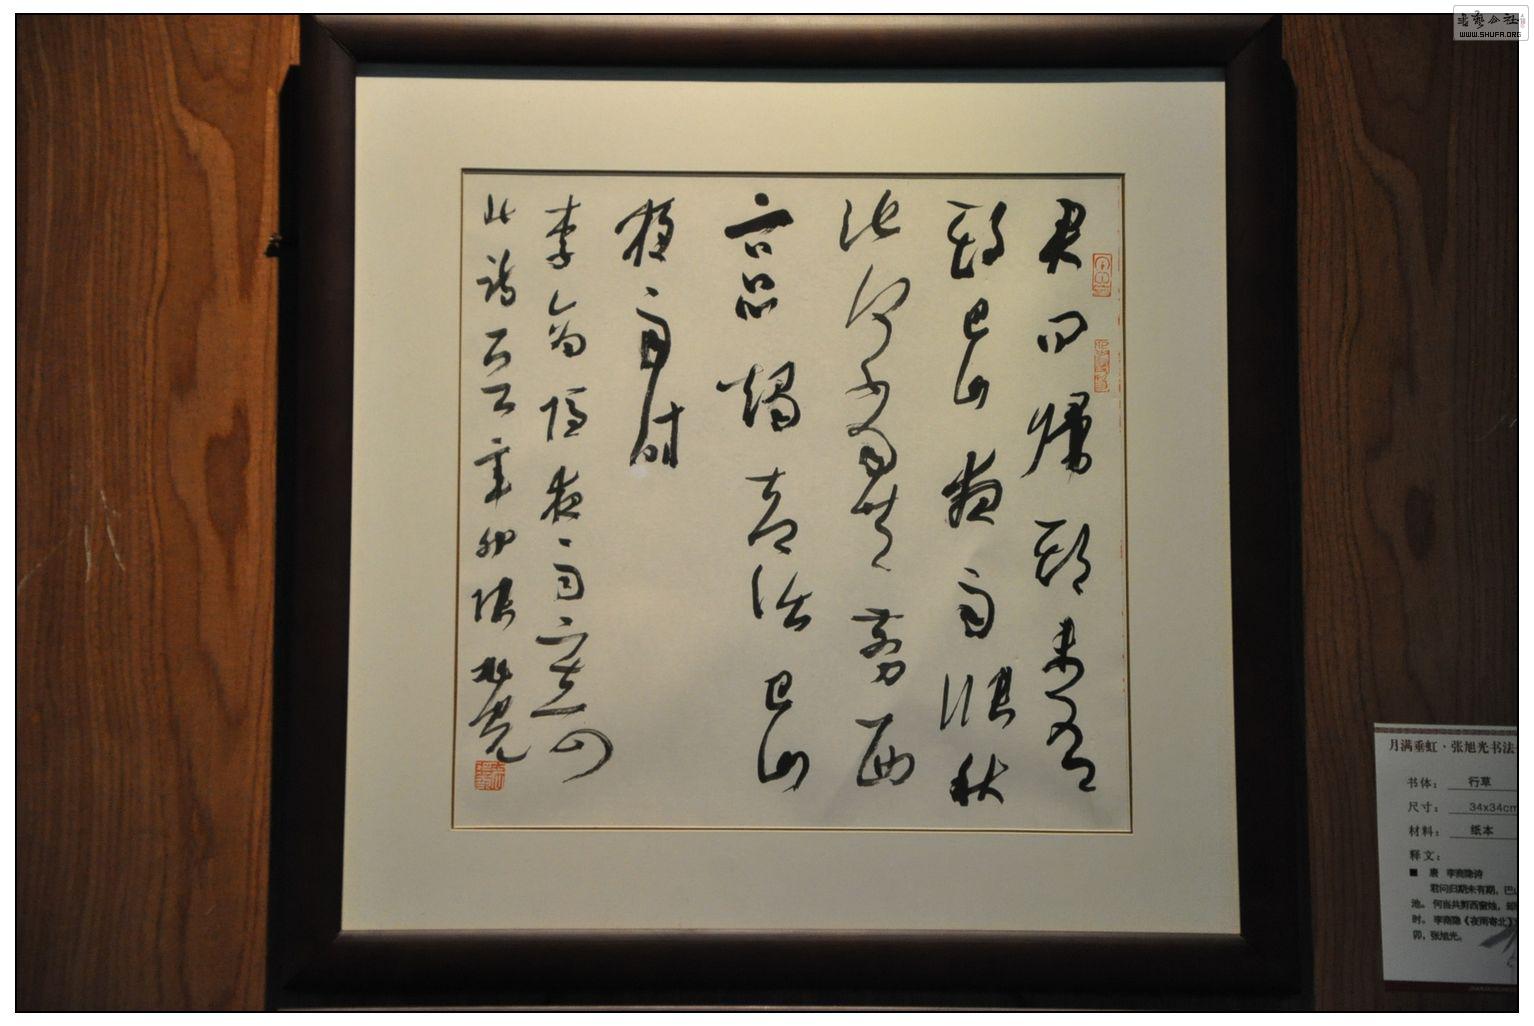 君問歸期未有
期巴山夜雨漲秋
池何當共剪西
窗燭却話巴山
夜雨時
李商隱夜雨
此詩辛卯張旭光
書藝公社
WWW.SHUFA.ORG
月满垂虹·张旭光书法
书体： 行草
尺寸： 34x34cm
材料： 纸本
释文：
■ 唐 李商隐诗
君问归期未有期，巴
池。何当共剪西窗烛，却
时。李商隐《夜雨寄北》
卯，张旭光。